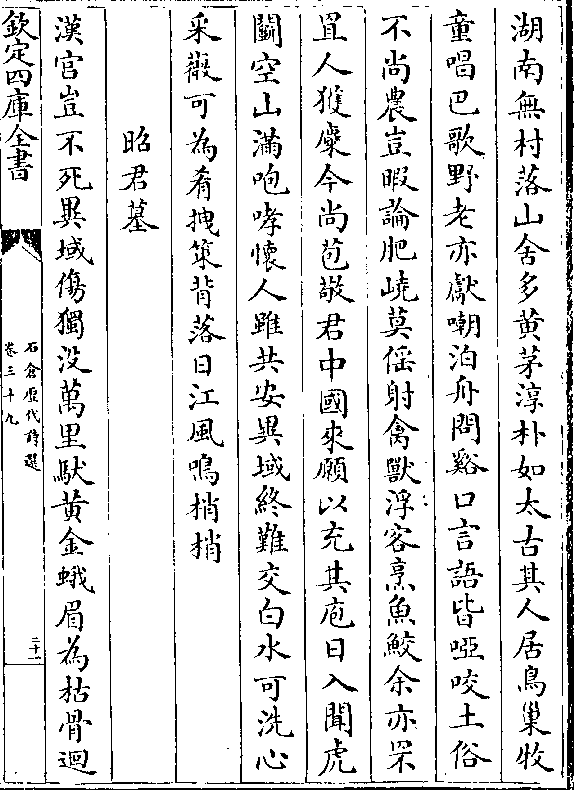 湖南無村落山舍多黄茅淳朴如太古其人居鳥巢牧
童唱巴歌野老亦獻嘲泊舟問谿口言語皆啞咬土俗
不尚農豈暇論肥嶢莫傜射禽獸浮客烹魚鮫余亦罘
罝人獲麋今尚苞敬君中國來願以充其庖日入聞虎
鬭空山滿咆哮懷人雖共安異域終難交白水可洗心
采薇可為肴拽策背落日江風鳴梢梢
昭君墓
漢宫豈不死異域傷獨没萬里馱黄金蛾眉為枯骨迴
欽定四庫全書
石倉歷代詩選
卷三十九
二十一